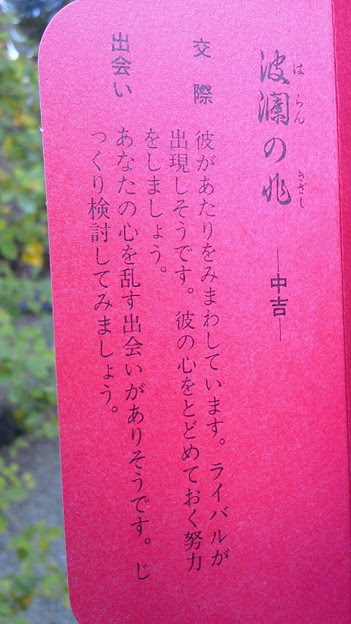 波瀾の兆
はらん
きざし
―中吉―
交際
彼があたりをみまわしています。ライバルが
出現しそうです。彼の心をとどめておく努力
をしましょう。
出会い
あなたの心を乱す出会いがありそうです。じ
っくり検討してみましょう。